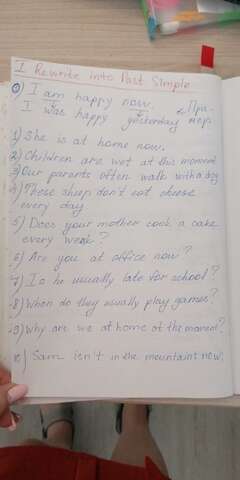 I Rewrite into Past Simple.
0) I am happy now.
I was happy yesterday
При-
мер
1) She is at home now.
2) Children are wet at this moment
3) Our parents often walk with a dog
4) These sheep don't eat cheese
every day
5) Does your mother cook a cake
every week?
6) Are you at office now?
7) Is he usually late for school?
8) When do they usually play games?
9) Why are we at home at the moment?
10) Sam isn't in the mountaint now.